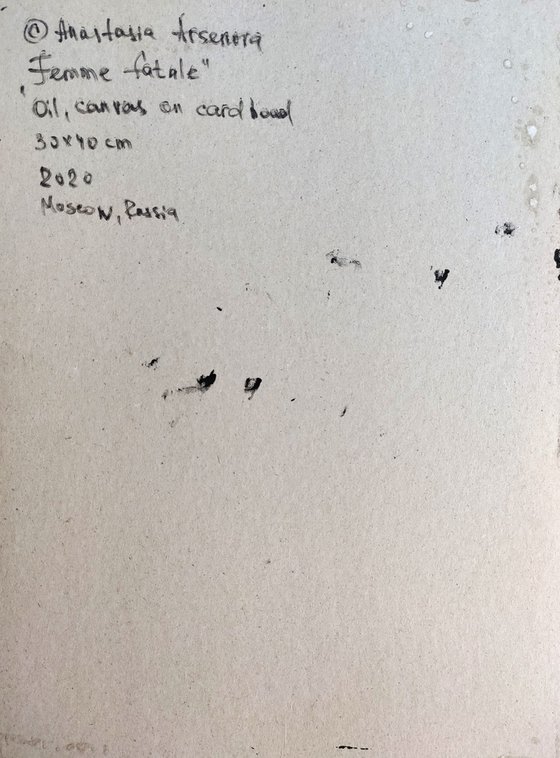 © Anastasia Arsenova
„Femme fatale"
Oil, canvas on cardboad
30x40 cm
2020
Moscow, Russia